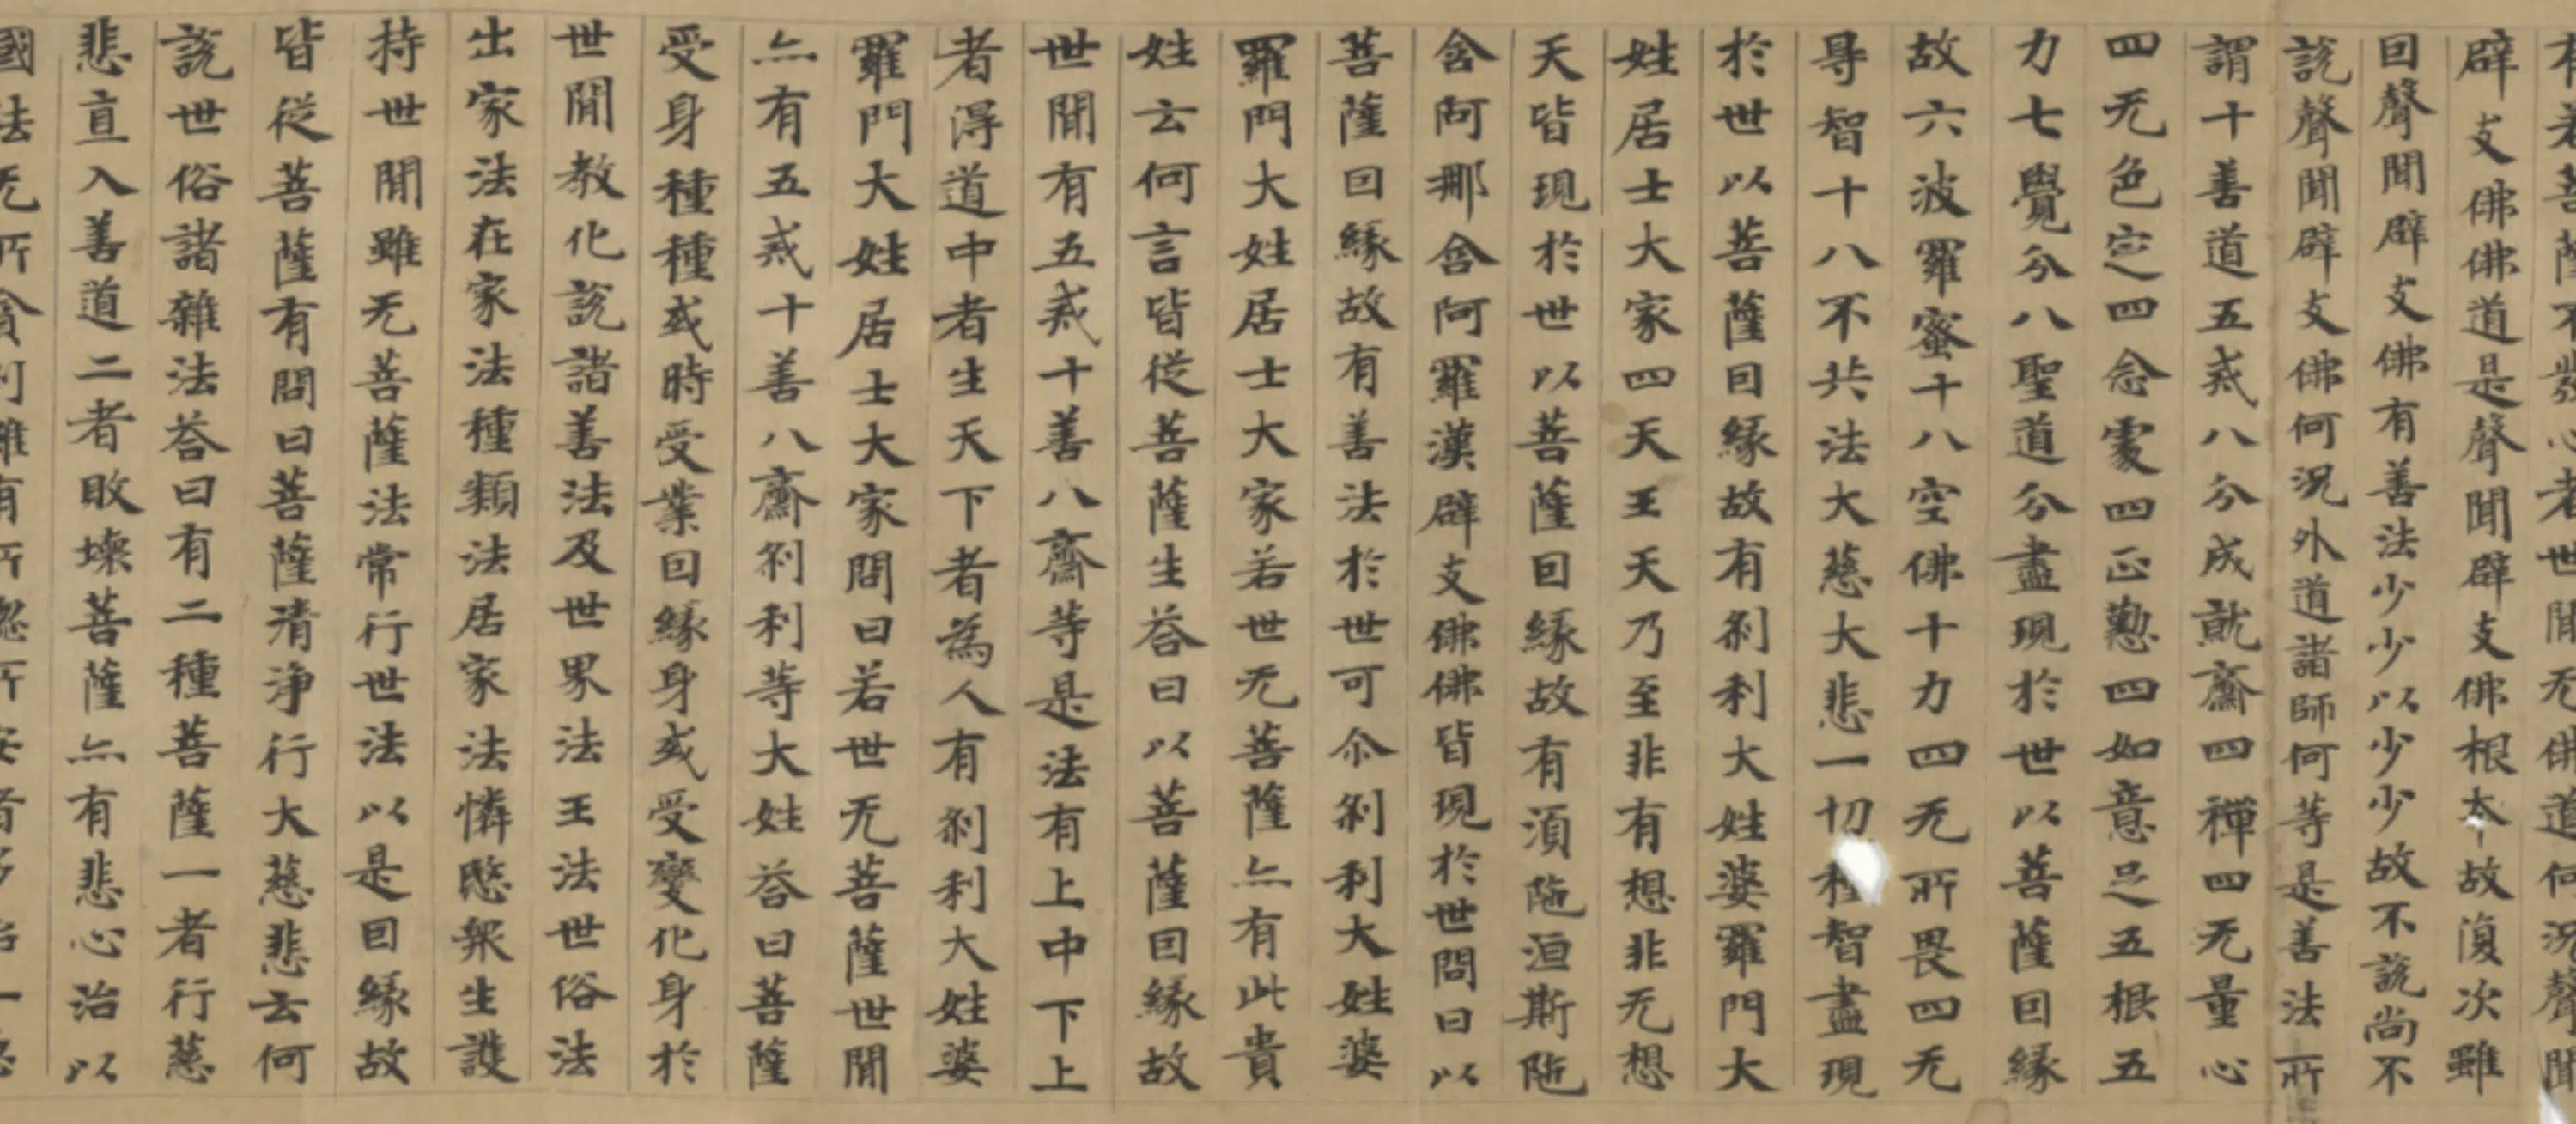 有若菩薩不發心者世間无佛道何況聲聞
辟支佛佛道是聲聞辟支佛根本故復次雖
因聲聞辟支佛有善法少少以少少故不說尚不
說聲聞辟支佛何況外道諸師何等是善法所
謂十善道五戒八分成就齋四禪四无量心
四无色定四念處四正懃四如意足五根五
力七覺分八聖道分盡現於世以菩薩因緣
故六波羅蜜十八空佛十力四无所畏四无
㝵智十八不共法大慈大悲一切種智盡現
於世以菩薩因緣故有剎利大姓婆羅門大
姓居士大家四天王天乃至非有想非无想
天皆現於世以菩薩因緣故有須陁洹斯陁
含阿那含阿羅漢辟支佛佛皆現於世問曰以
菩薩因緣故有善法於世可尒剎利大姓婆
羅門大姓居士大家若世无菩薩亦有此貴
姓云何言皆從菩薩生荅曰以菩薩因緣故
世間有五戒十善八齋等是法有上中下上
者得道中者生天下者為人有剎利大姓婆
羅門大姓居士大家問曰若世无菩薩世間
亦有五戒十善八齋剎利等大姓荅曰菩薩
受身種種或時受業因緣身或受變化身於
世間教化說諸善法及世界法王法世俗法
出家法在家法種類法居家法憐愍衆生護
持世間雖无菩薩法常行世法以是因緣故
皆從菩薩有問曰菩薩清淨行大慈悲云何
說世俗諸雜法荅曰有二種菩薩一者行慈
悲直入善道二者敗壞菩薩亦有悲心治以
國法无所貪利雖有所惱所安者多治一惡